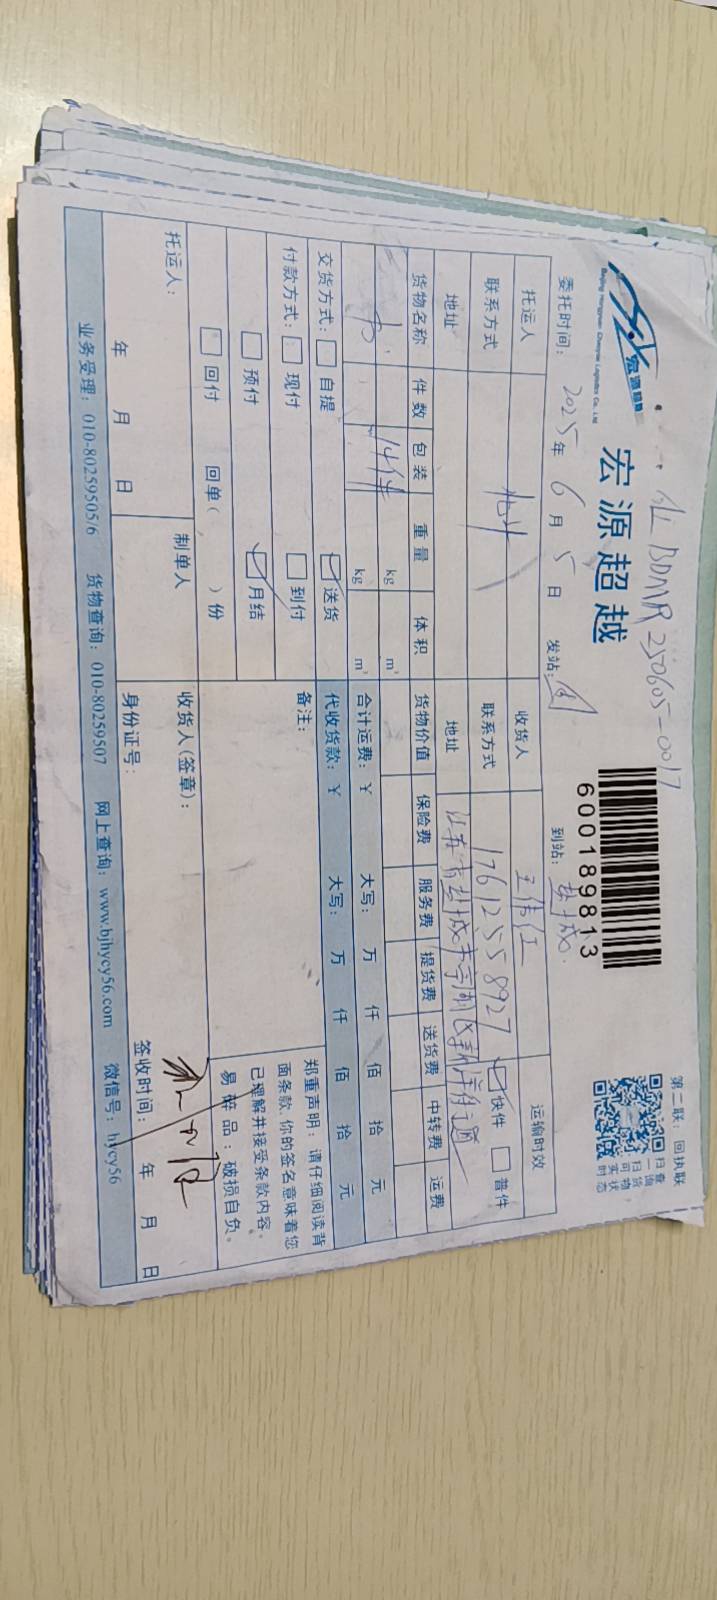 BDMR250605-0017
第二联：回执联
宏源超越
Beijing Hongyuan Chaoyue Logistics Co., Ltd
宏源超越
600189813
扫一扫 查询货物实时状态
委托时间： 2025年 6 月 5 日 发站： 到站： 盐城
托运人 收货人 运输时效
联系方式 联系方式 17612558927 快件 普件
地址 地址 江苏省盐城市亭湖区
货物名称 件数 包装 重量 体积 货物价值 保险费 服务费 提货费 送货费 中转费 运费
14件 kg m³
kg m³ 合计运费：￥ 大写： 万 仟 佰 拾 元
交货方式： 自提 送货 代收货款：￥ 大写： 万 仟 佰 拾 元
付款方式： 现付 到付 备注：
预付 月结
回付 回单（ ）份
郑重声明：请仔细阅读背
面条款，你的签名意味着您
已理解并接受条款内容。
易碎品：破损自负。
托运人： 制单人 收货人(签章)：
年 月 日 身份证号： 签收时间： 年 月 日
业务受理：010-80259505/6 货物查询：010-80259507 网上查询：www.bjhycy56.com 微信号：hycy56